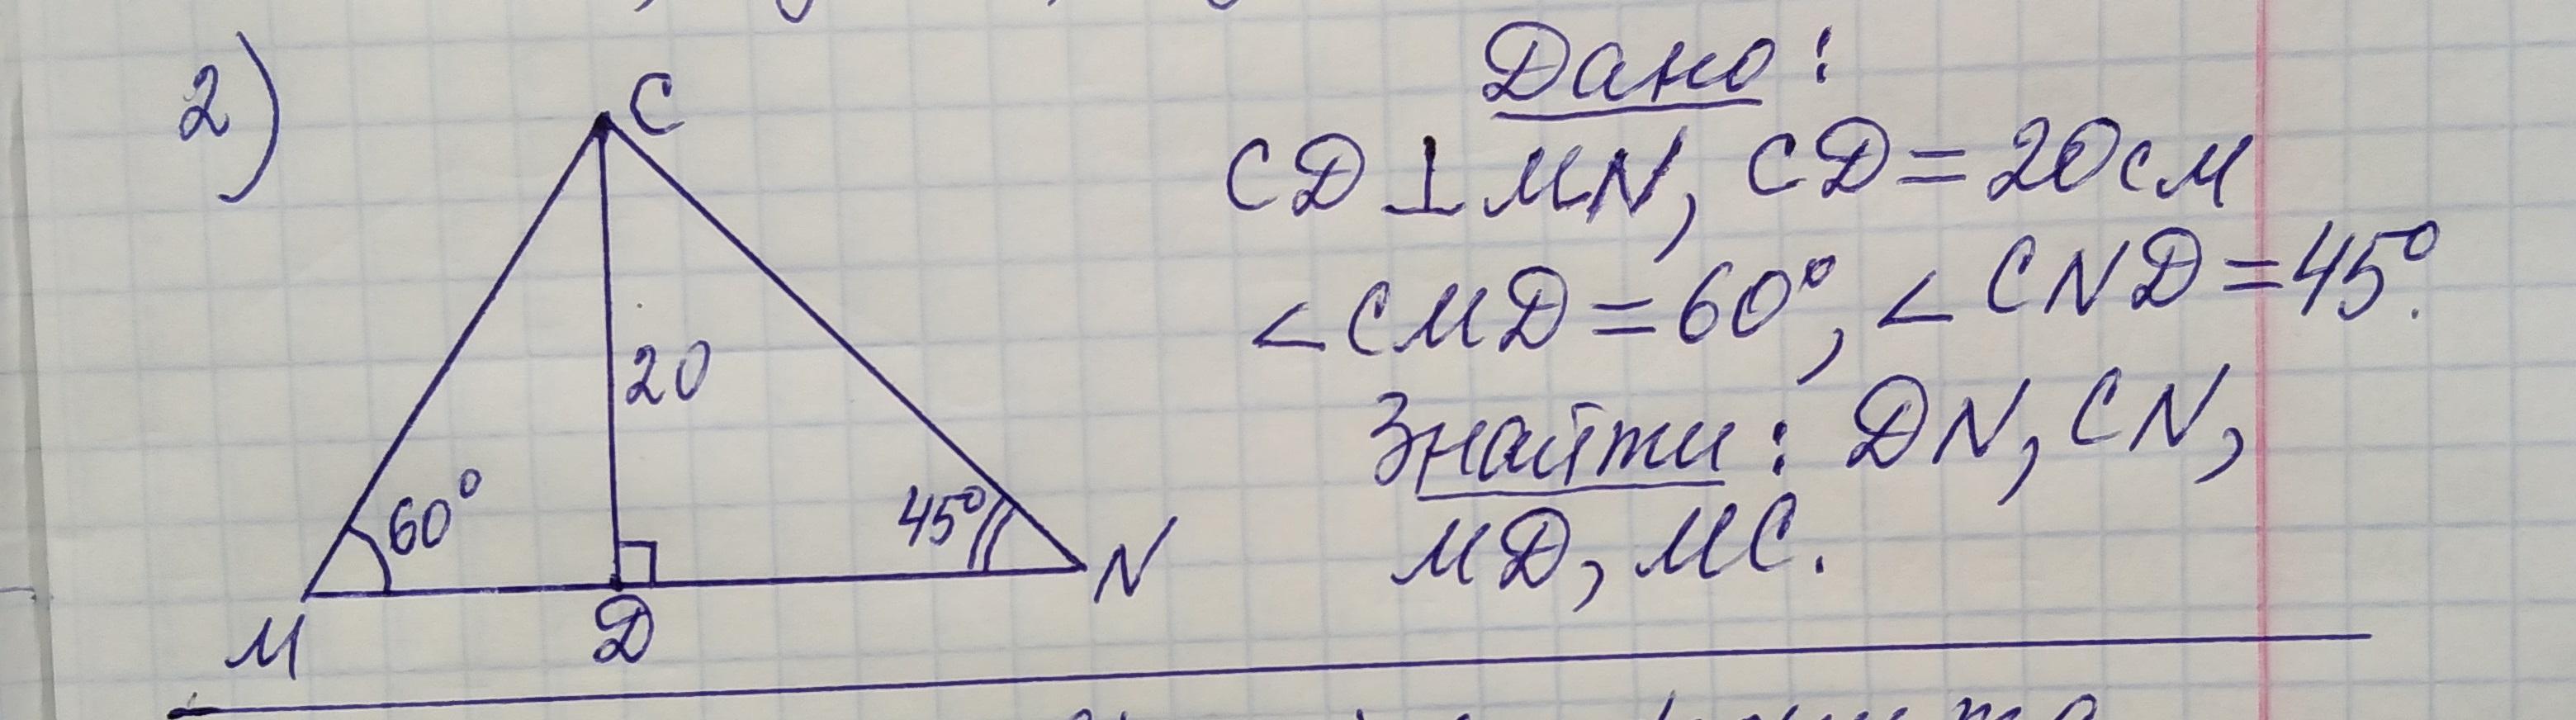 2)
C
20
60°
45°
M
D
N
Дано:
CD ⊥ MN, CD = 20 см
∠CMD = 60°, ∠CND = 45°.
Знайти: DN, CN,
MD, MC.